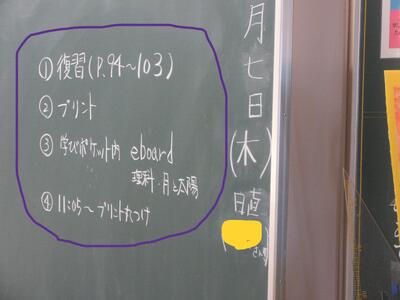 月七日(木)
日直
①復習(P.94〜103)
②プリント
③学びポケット内 eboard
理科・月と太陽
④11:05〜プリント丸つけ